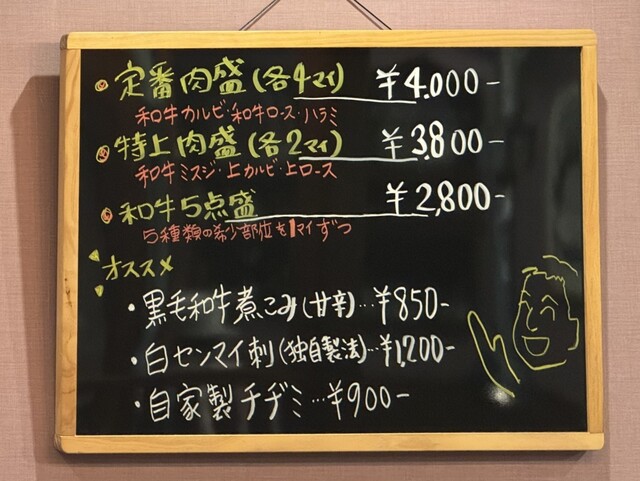 定番肉盛(各4マイ) ¥4.000-
和牛カルビ・和牛ロース・ハラミ
特上肉盛(各2マイ) ¥3.800-
和牛ミスジ・上カルビ・上ロース
和牛5点盛 ¥2,800-
5種類の希少部位を1マイずつ
オススメ
・黒毛和牛煮こみ(甘辛)…¥850-
・白センマイ刺(独自製法)…¥1,200-
・自家製チヂミ…¥900-